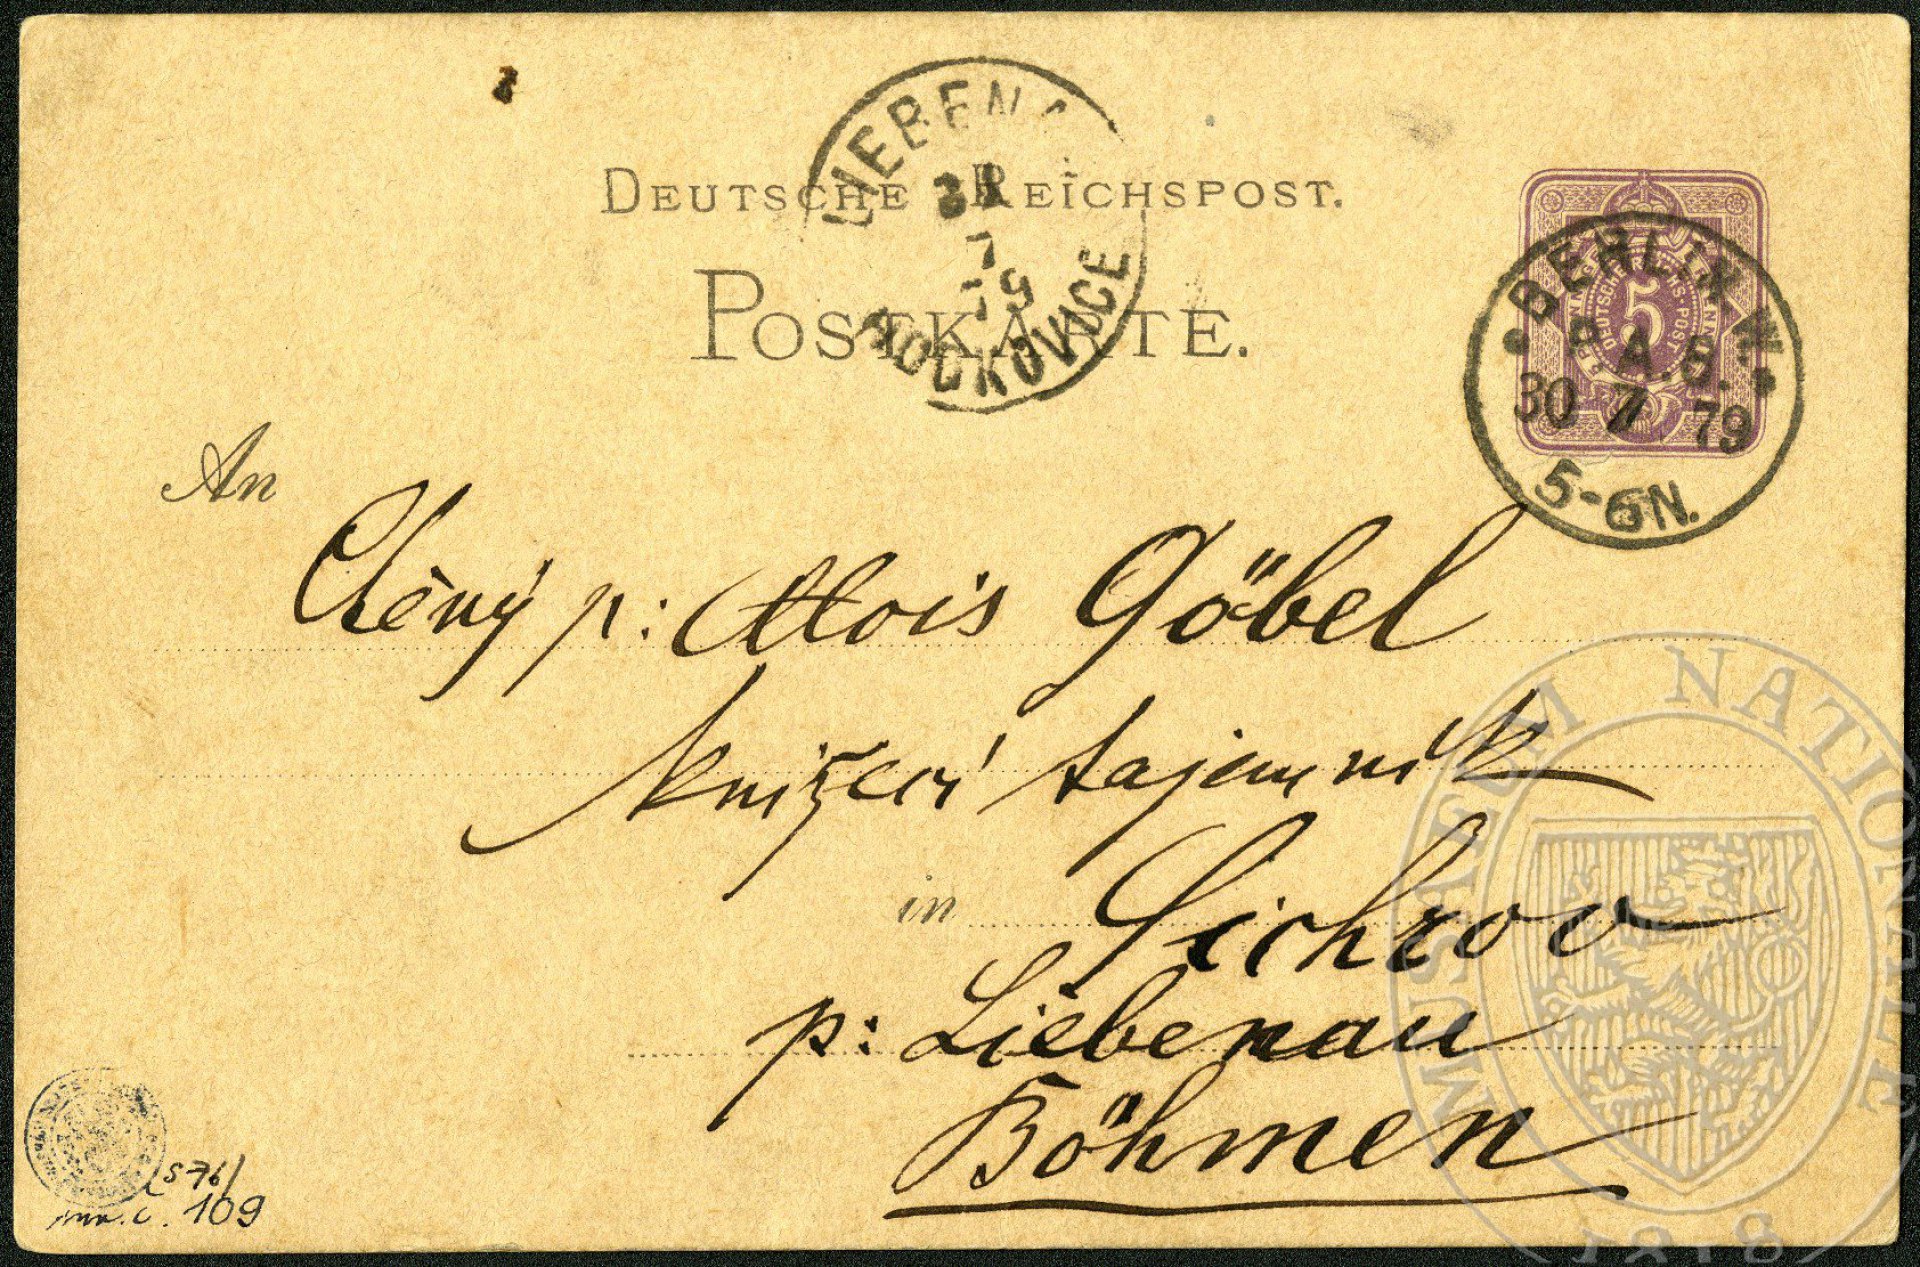 LIEBENA
31
7
79
HODKOVICE
DEUTSCHE REICHSPOST.
POSTKARTE.
DEUTSCHE REICHS-POST
5
BERLIN. W.
P.A. 8.
30 7 79
5-6N.
An
Ctěný p: Alois Göbel
knížecí tajemník
in Sichrov
p: Liebenau
Böhmen
S 76/
inv. č. 109
MUSAEUM NATIONALE
1818